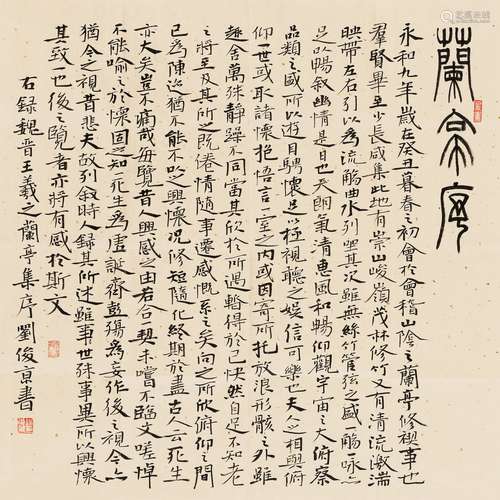 蘭亭序
永和九年歲在癸丑暮春之初會於會稽山陰之蘭亭修禊事也
羣賢畢至少長咸集此地有崇山峻嶺茂林修竹又有清流激湍
映帶左右引以為流觴曲水列坐其次雖無絲竹管弦之盛一觴一詠亦
足以暢敘幽情是日也天朗氣清惠風和暢仰觀宇宙之大俯察
品類之盛所以遊目騁懷足以極視聽之娛信可樂也夫人之相與俯
仰一世或取諸懷抱悟言一室之內或因寄所托放浪形骸之外雖
趣舍萬殊靜躁不同當其欣於所遇暫得於己快然自足不知老
之將至及其所之既倦情隨事遷感慨系之矣向之所欣俯仰之間
已為陳迹猶不能不以之興懷況修短隨化終期於盡古人云死生
亦大矣豈不痛哉每覽昔人興感之由若合一契未嘗不臨文嗟悼
不能喻之於懷固知一死生為虛誕齊彭殤為妄作後之視今亦
猶今之視昔悲夫故列敘時人錄其所述雖事世殊事異所以興懷
其致一也後之覽者亦將有感於斯文
右錄魏晉王羲之蘭亭集序劉俊京書